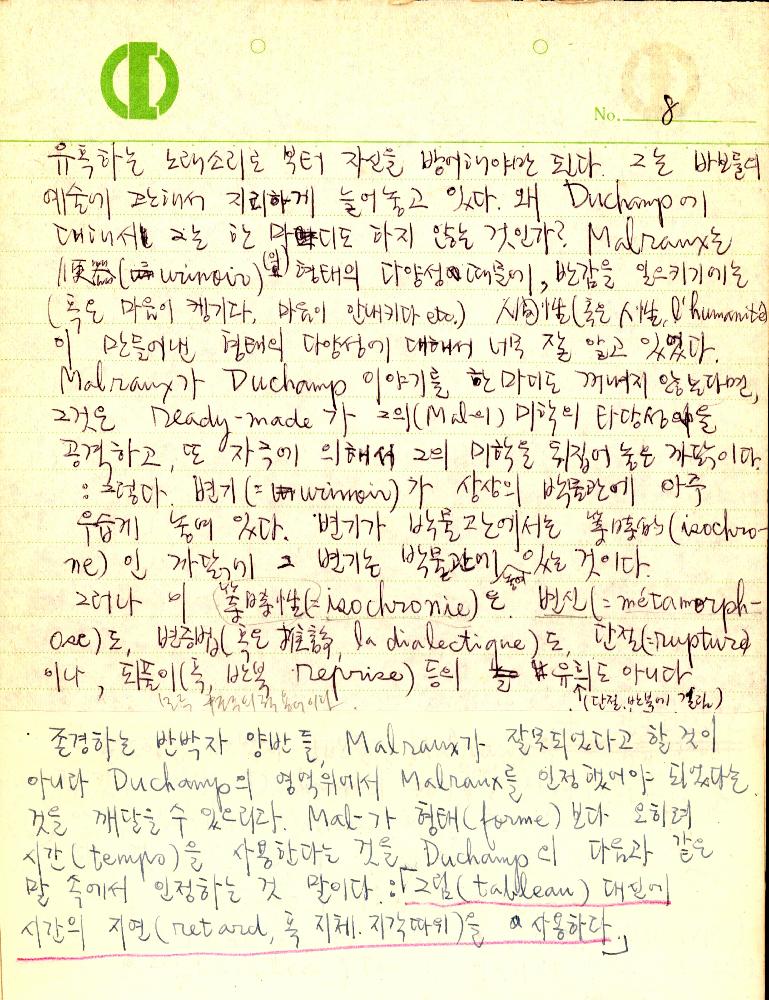 No. 8
유혹하는 노래소리로 부터 자신을 방어해야만 된다. 그는 바보들의
예술에 관해서 지리하게 늘어놓고 있다. 왜 Duchamp에
대해서 그는 한 마디도 하지 않는 것인가? Malraux는
便器(urinoir) 형태의 다양성 때문에, 반감을 일으키기에는
(혹은 마음이 켕기다, 마음이 안내키다 etc.) (혹은 人性, l'humanité)
이 만들어낸 형태의 다양성에 대해서 너무 잘 알고 있었다.
Malraux가 Duchamp 이야기를 한 마디도 꺼내지 않는다면,
그것은 ready-made가 그의(Mal-의) 미학의 타당성을
공격하고, 또 자극에 의해서 그의 미학을 뒤집어 놓은 까닭이다.
: 그렇다. 변기(=urinoir)가 상상의 박물관에 아주
우습게 놓여 있다. 변기가 박물관에서는 等時的(isochro-
ne)인 까닭에 그 변기는 박물관에 놓여 있는 것이다.
그러나 이 等時性(=isochronie)은 변신(=métamorph-
ose)도, 변증법(혹은 推論, la dialectique)도, 단절(=rupture)
이나, 되풀이(즉, 반복 reprise) 등의 유희도 아니다
(단절, 반복에 걸림)
· 존경하는 반박자 양반들, Malraux가 잘못되었다고 할 것이
아니라 Duchamp의 영역위에서 Malraux를 인정했어야 되었다는
것을 깨달을 수 있으리라. Mal-가 형태(forme)보다 오히려
시간(temps)을 사용한다는 것을 Duchamp의 다음과 같은
말 속에서 인정하는 것 말이다.:「그림(tableau) 대신에
시간의 지연(retard, 혹 지체. 지각따위)을 사용하다.」